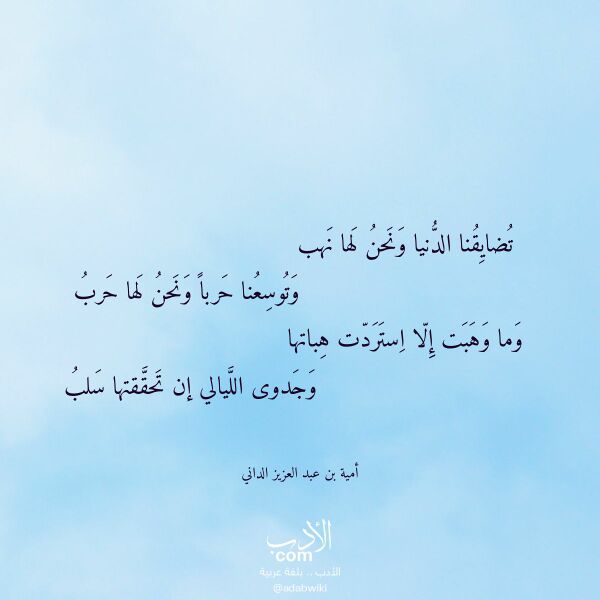 تُضايِقُنا الدُّنيا وَنَحنُ لَها نَهب
وَتُوسِعُنا حَرباً وَنَحنُ لَها حَربُ
وَما وَهَبَت إِلّا اِستَرَدّت هِباتها
وَجَدوى اللَّيالي إن تَحَقَّقتها سَلبُ
أمية بن عبد العزيز الداني
الأدب
com
الأدب .. بلغة عربية
@adabwiki